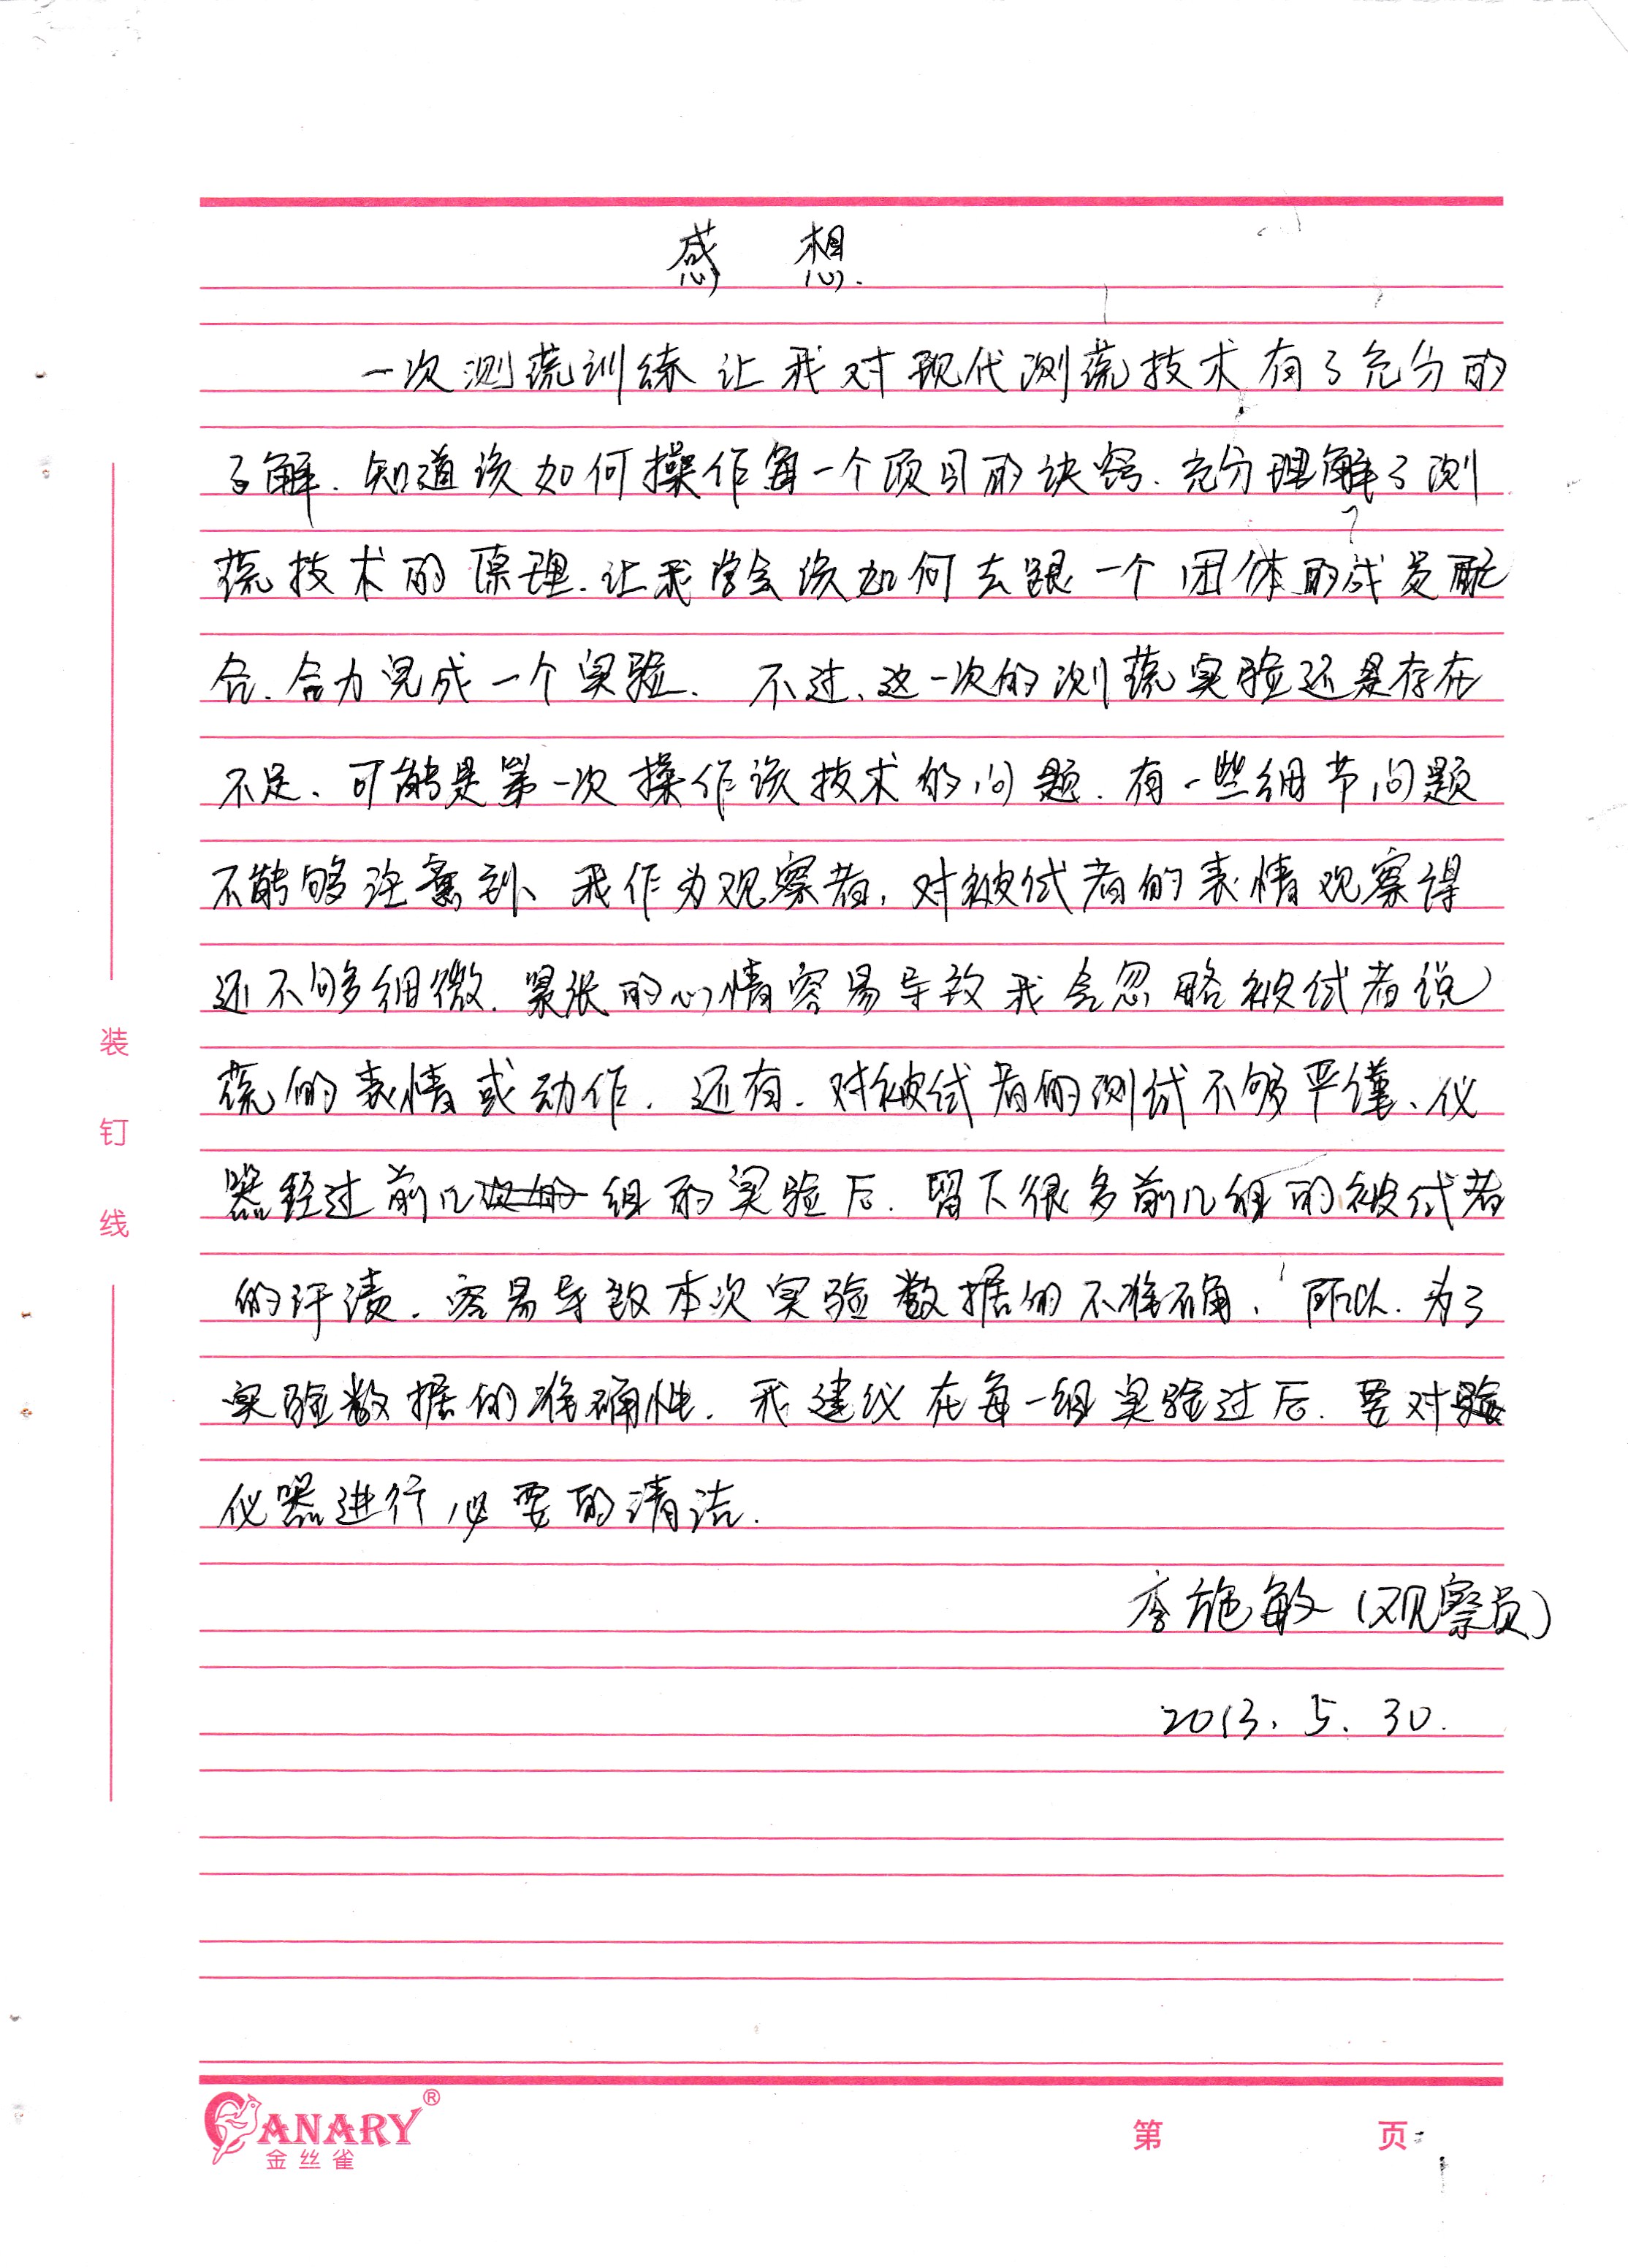 感 想.
一次测谎训练让我对现代测谎技术有了充分的
了解.知道该如何操作每一个项目的诀窍.充分理解了测
谎技术的原理.让我学会该如何去跟一个团体的成员配
合.合力完成一个实验. 不过、这一次的测谎实验还是存在
不足、可能是第一次操作该技术的问题.有一些细节问题
不能够注意到、我作为观察者,对被试者的表情观察得
还不够细微.紧张的心情容易导致我会忽略被试者说
谎的表情或动作.还有.对被试者的测试不够严谨、仪
器经过前几组的实验后.留下很多前几组的被试者
的汗渍.容易导致本次实验数据的不准确, 所以.为了
实验数据的准确性.我建议在每一组实验过后.要对
仪器进行必要的清洁.
李施敏(观察员)
2013.5.30.
装
钉
线
CANARY®
金丝雀
第 页